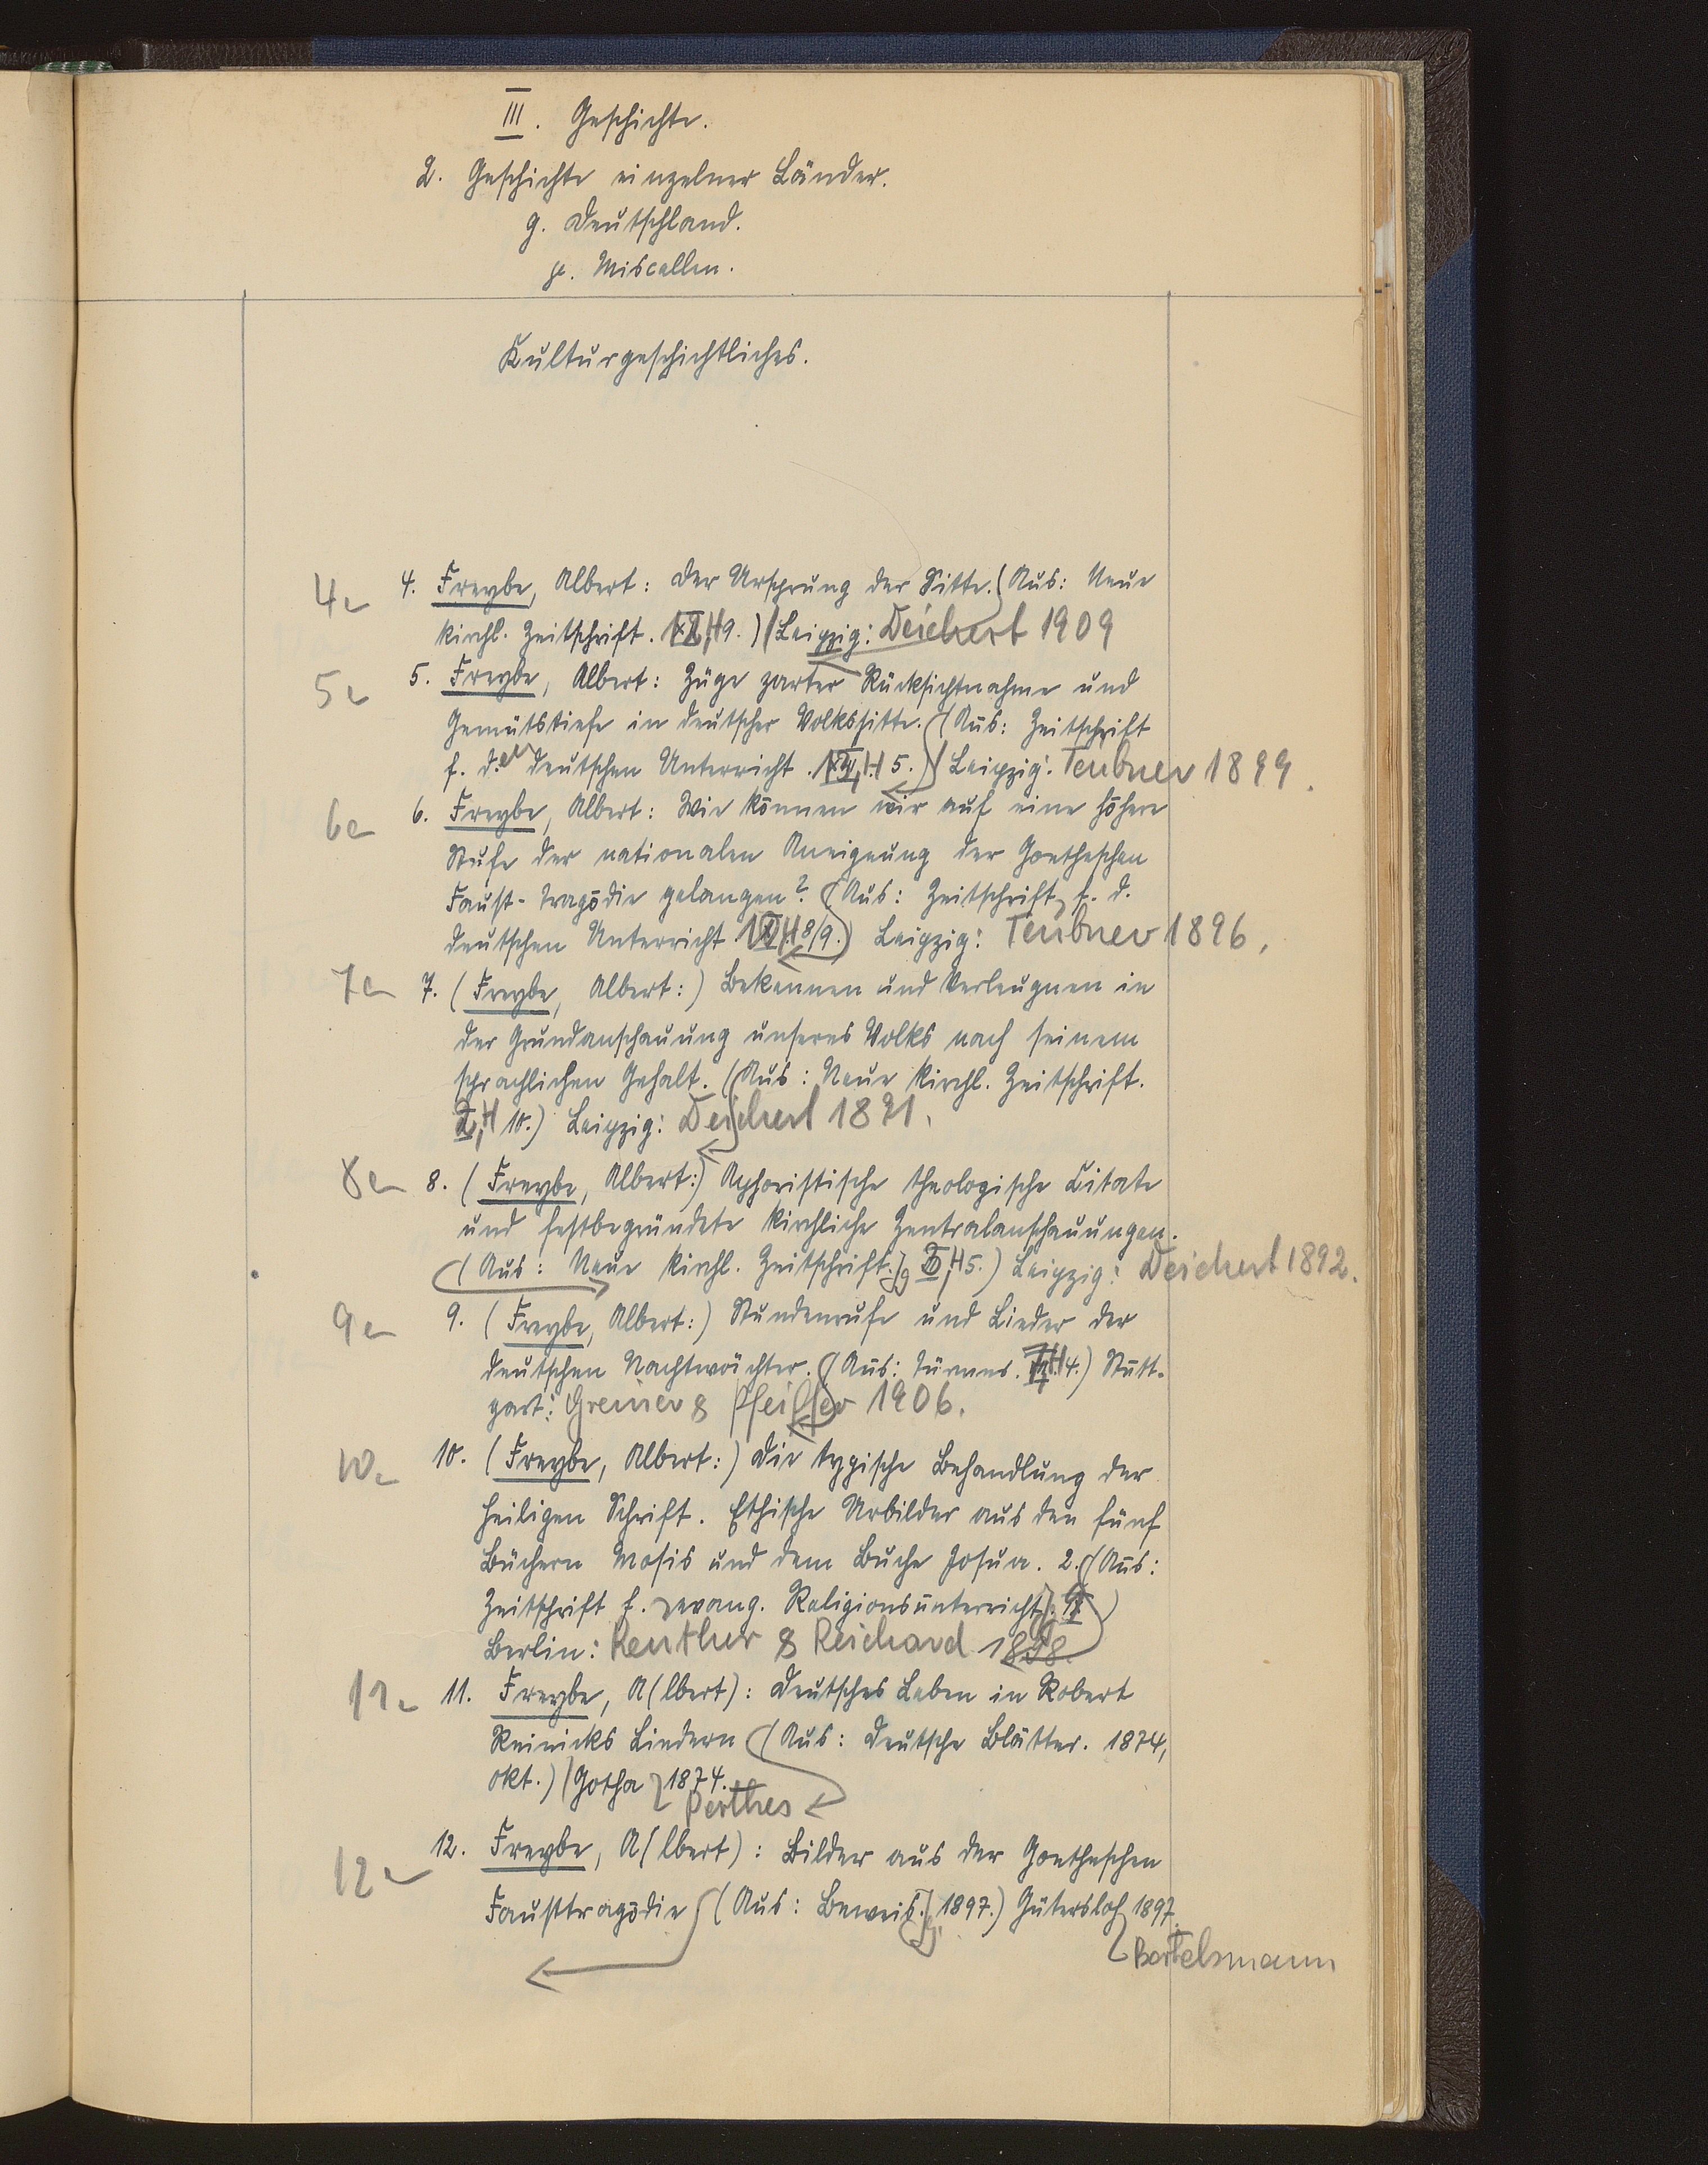 III. Geschichte.
2. Geschichte einzelner Länder.
g. Deutschland.
Miscellen.
Kulturgeschichtliches.
4a 4. Freybe, Albert: Der Ursprung der Sitte. (Aus: Neue
kirchl. Zeitschrift. H 9.) Leipzig: Deichert 1909
5a 5. Freybe, Albert: Züge zarter Rücksichtnahme und
Gemütstiefe in deutscher Volkssitte. (Aus: Zeitschrift
f. den deutschen Unterricht. H 5.) Leipzig: Teubner 1899.
6a 6. Freybe, Albert: Wie können wir auf eine höhere
Stufe der nationalen Aneignung der Goetheschen
Faust-Tragödie gelangen? (Aus: Zeitschrift f. d.
deutschen Unterricht H 8/9.) Leipzig: Teubner 1896.
7a 7. (Freybe, Albert:) Bekennen und Verleugnen in
der Grundanschauung unseres Volks nach seinem
sprachlichen Gehalt. (Aus: Neue kirchl. Zeitschrift.
H 10.) Leipzig: Deichert 1891.
8a 8. (Freybe, Albert:) Aphoristische theologische Citate
und festbegründete kirchliche Zentralanschauungen.
(Aus: Neue kirchl. Zeitschrift. H 5.) Leipzig: Deichert 1892.
9a 9. (Freybe, Albert:) Stundenrufe und Lieder der
deutschen Nachtwächter. (Aus: Türmer. H 4.) Stutt-
gart: Greiner & Pfeiffer 1906.
10a 10. (Freybe, Albert:) Die typische Behandlung der
heiligen Schrift. Ethische Urbilder aus den fünf
Büchern Mosis und dem Buche Josua. 2. (Aus:
Zeitschrift f. evang. Religionsunterricht.)
Berlin: Reuther & Reichard 1898.
11a 11. Freybe, A(lbert): Deutsches Leben in Robert
Reinicks Liedern (Aus: Deutsche Blätter. 1874,
Okt.) Gotha 1874.
Perthes
12a 12. Freybe, A(lbert): Bilder aus der Goetheschen
Fausttragödie (Aus: Beweis. 1897.) Gütersloh 1897.
Bertelsmann